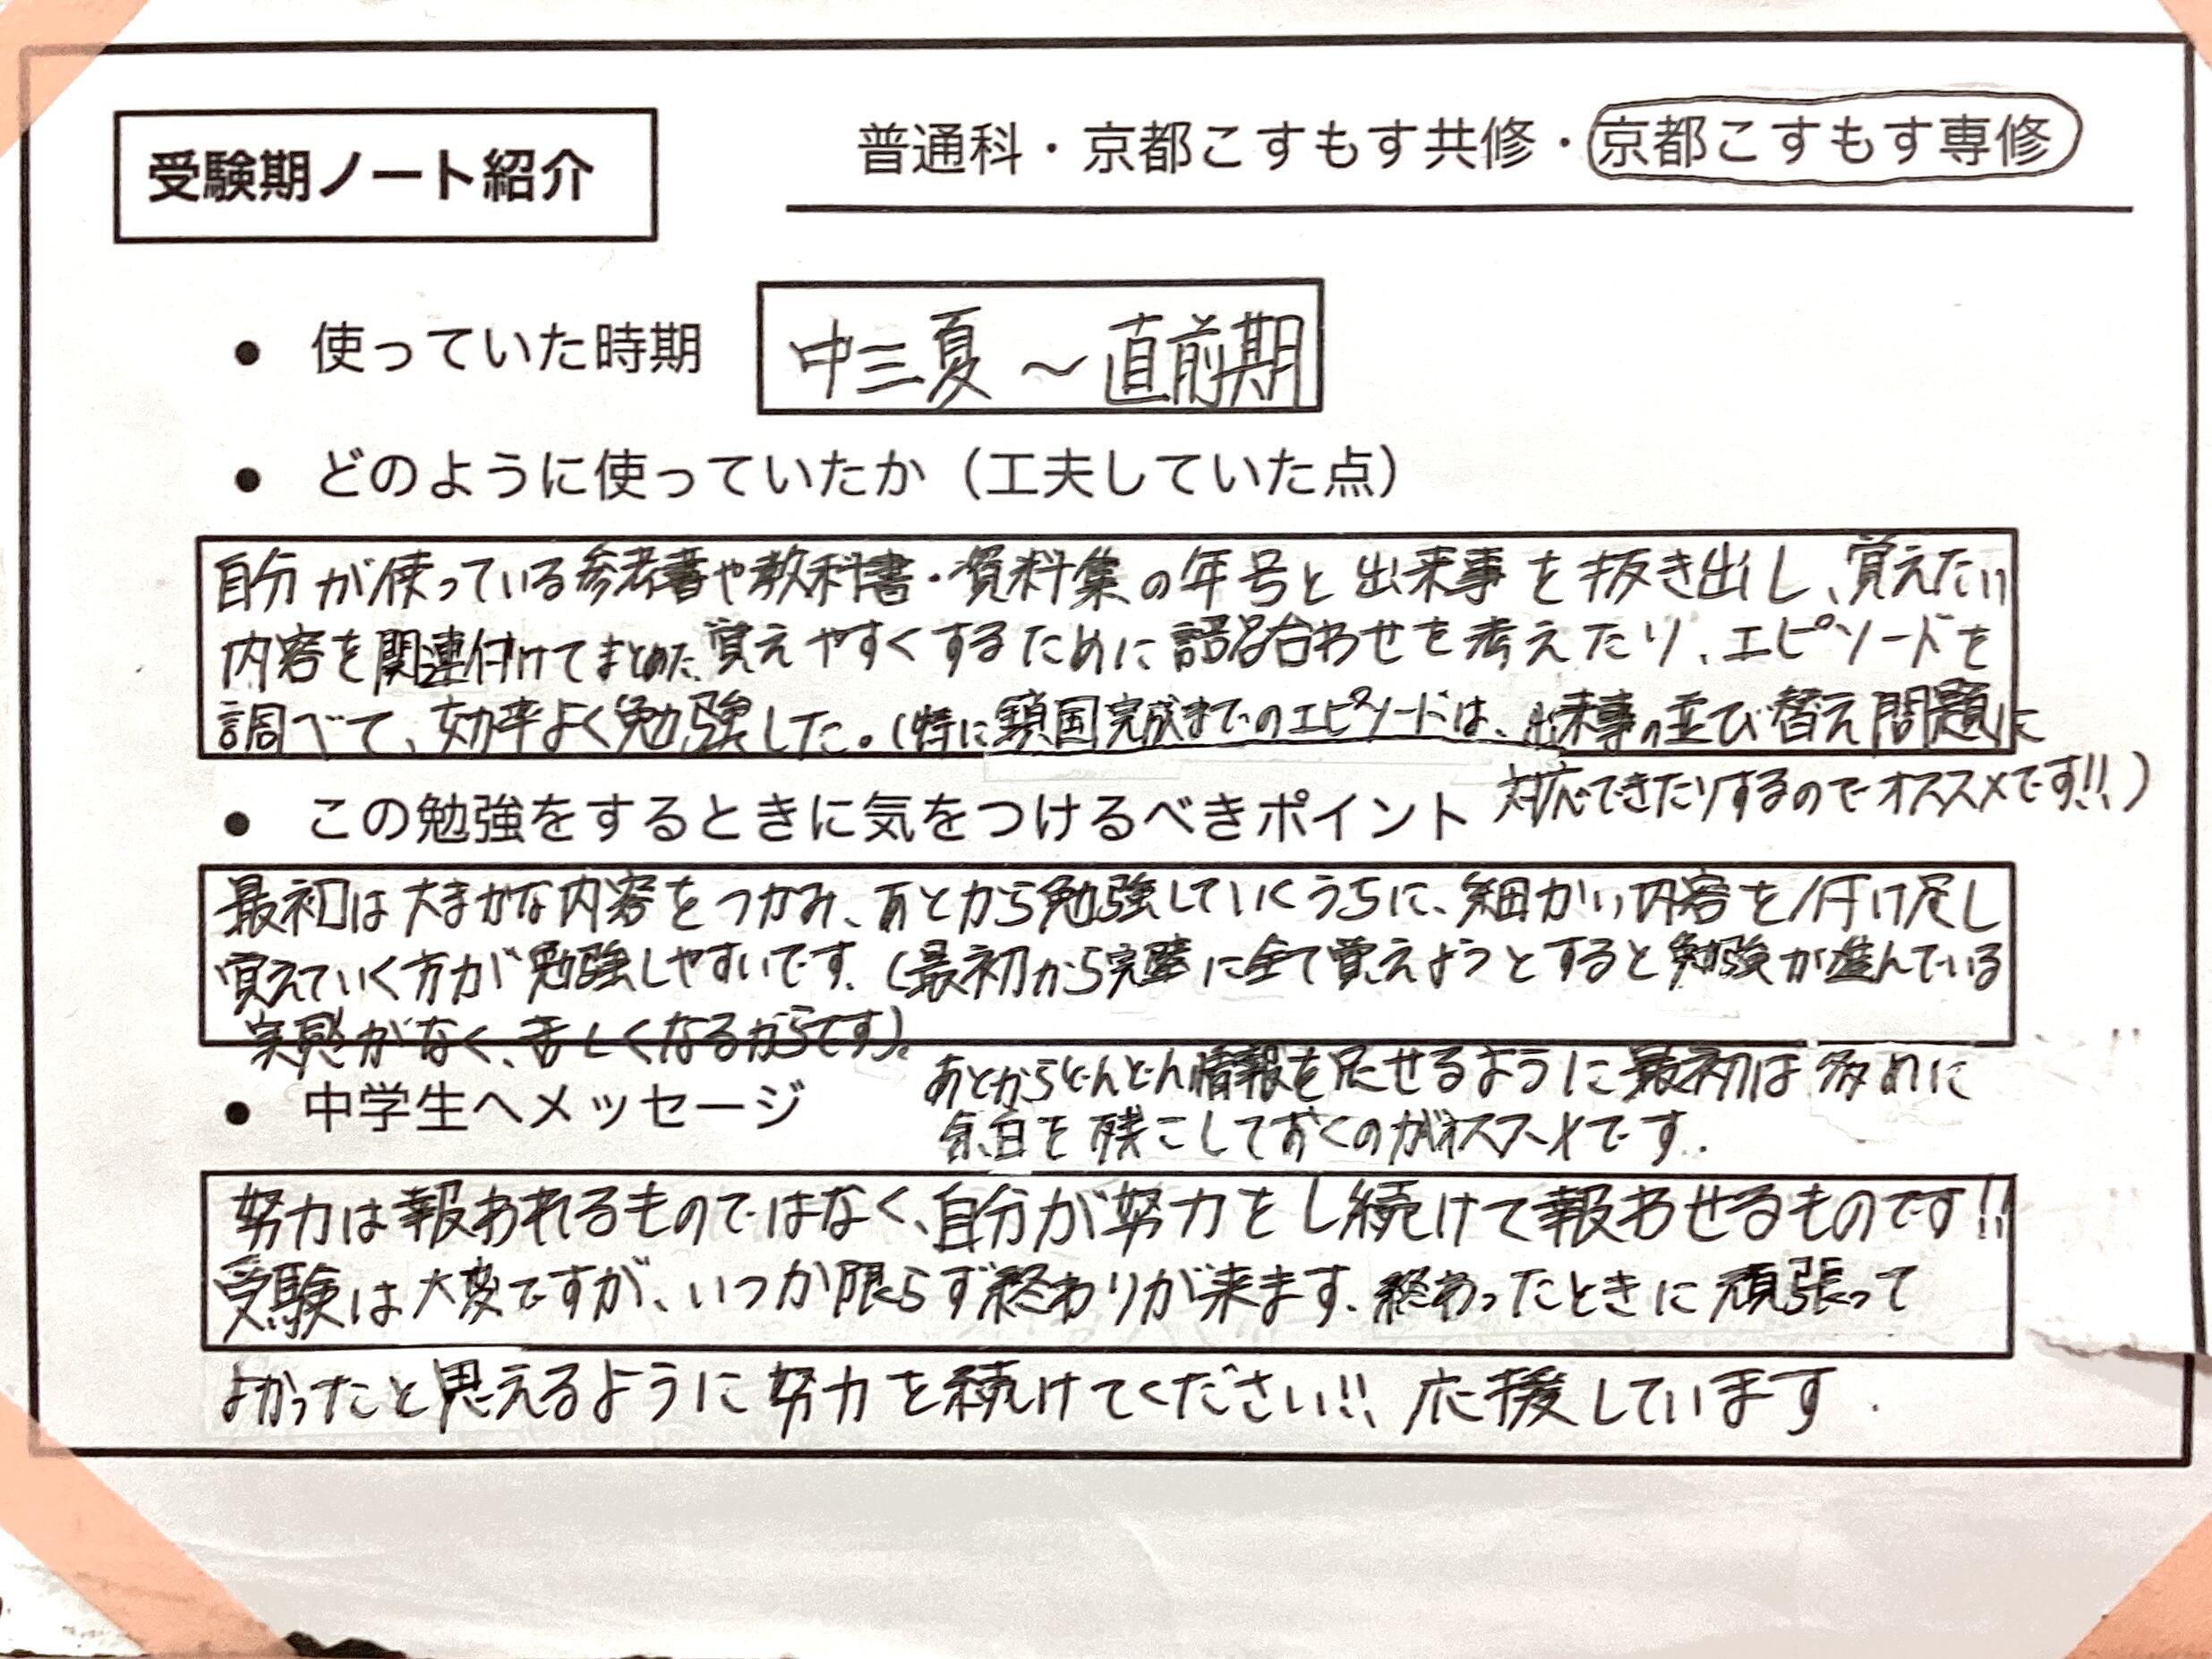 受験期ノート紹介
普通科・京都こすもす共修・京都こすもす専修
● 使っていた時期
中三夏～直前期
● どのように使っていたか（工夫していた点）
自分が使っている参考書や教科書・資料集の年号と出来事を抜き出し、覚えたい
内容を関連付けてまとめた。覚えやすくするために語呂合わせを考えたり、エピソードを
調べて、効率よく勉強した。(特に鎖国完成までのエピソードは、出来事の並び替え問題に
対応できたりするのでオススメです!!)
● この勉強をするときに気をつけるべきポイント
最初は大まかな内容をつかみ、あとから勉強していくうちに、細かい内容を付け足し
覚えていく方が勉強しやすいです。(最初から完璧に全て覚えようとすると勉強が進んでいる
実感がなく、苦しくなるからです)。
あとからどんどん情報を足せるように最初は多めに
余白を残こしておくのがオススメです.
● 中学生へメッセージ
努力は報われるものではなく、自分が努力をし続けて報わせるものです!!
受験は大変ですが、いつか限らず終わりが来ます。終わったときに頑張って
よかったと思えるように努力を続けてください!! 応援しています.